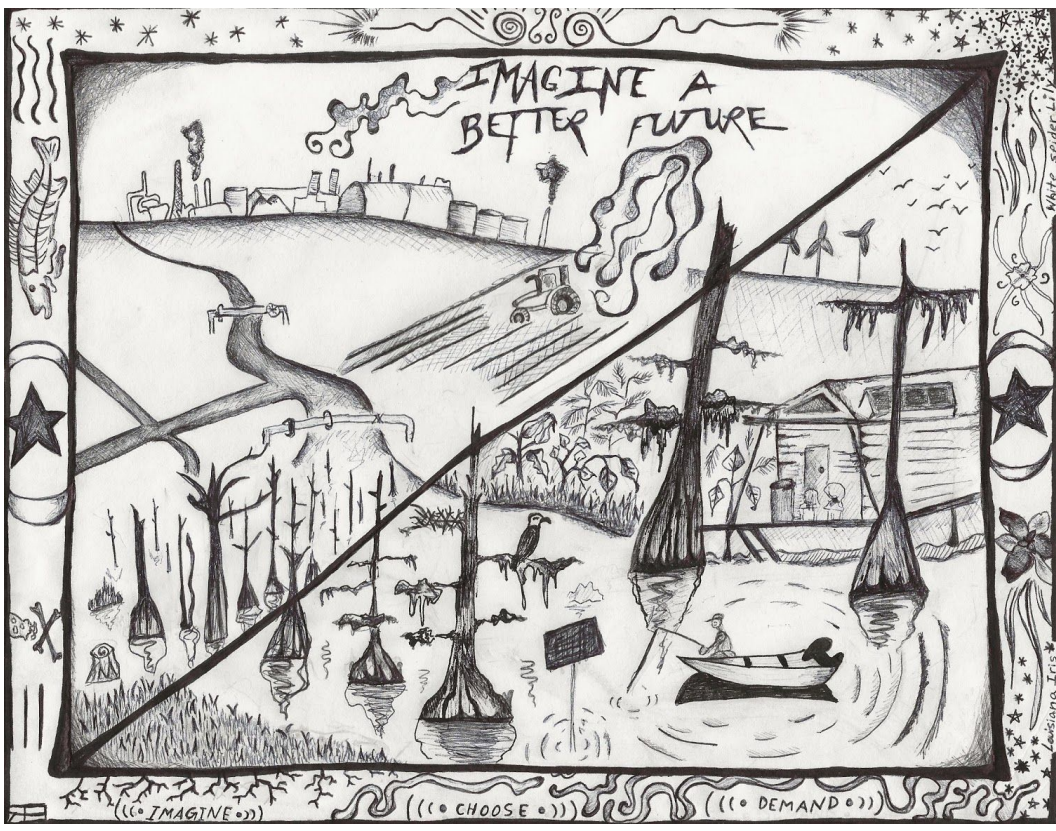 IMAGINE A
BETTER FUTURE
White spider Lily
Louisiana Iris
((• IMAGINE •))
(((• CHOOSE •)))
(((• DEMAND •)))